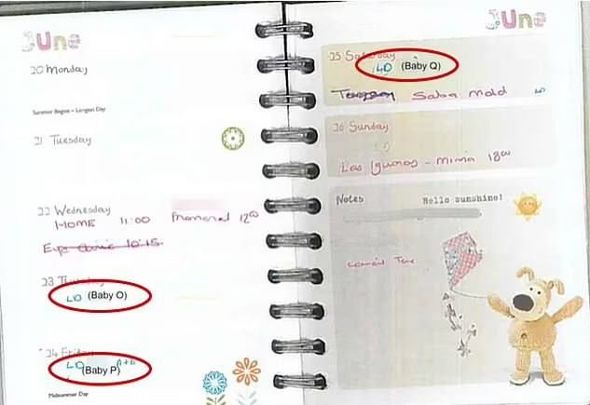 June
20 Monday
Summer Begins – Longest Day
21 Tuesday
22 Wednesday
HOME 11:00 12⁰⁰
10.15
23 Thursday
LD (Baby O)
24 Friday
LD (Baby P)
Midsummer Day
June
25 Saturday
LD (Baby Q)
Salsa LD
26 Sunday
Las Iguanas - mina 18⁰⁰
Notes Hello sunshine!